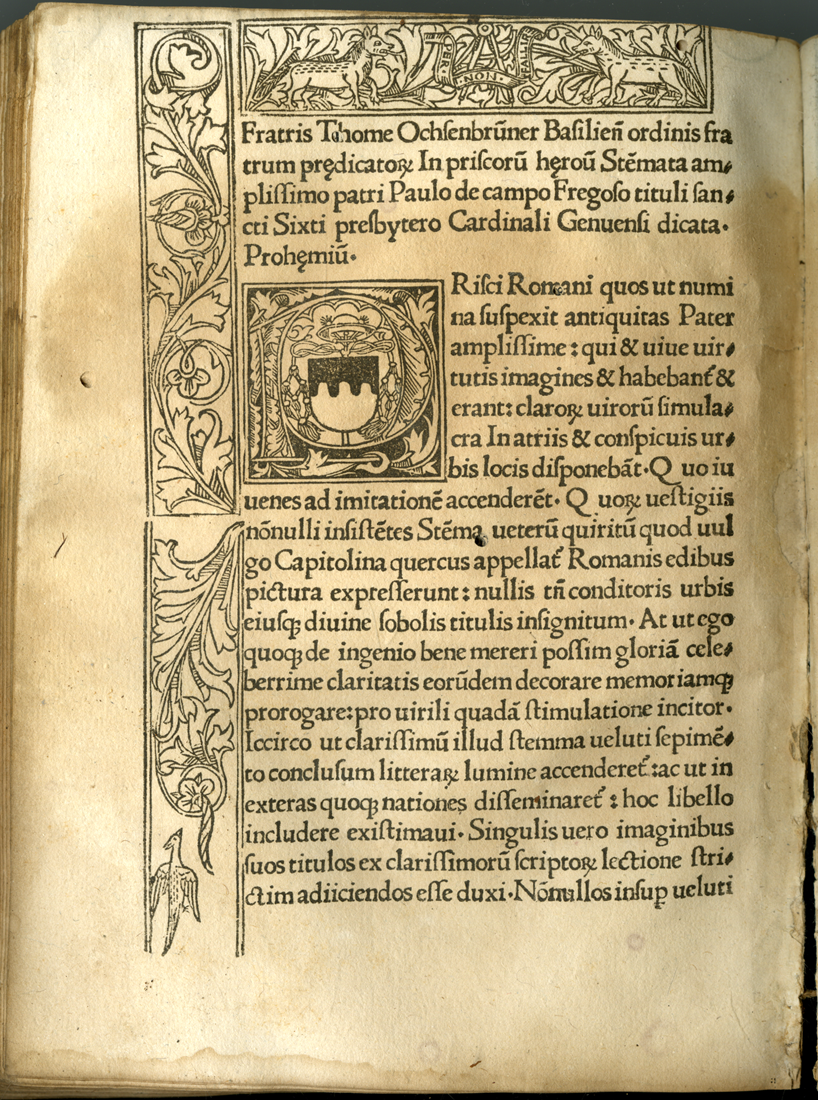 PER · NON · FALLIR
Fratris Tahome Ochsenbrũner Basilieñ ordinis fra
trum prędicatoꝝ In priscorũ hęroũ Stẽmata am⸗
plissimo patri Paulo de campo Fregoso tituli san⸗
cti Sixti presbytero Cardinali Genuensi dicata·
Prohęmiũ·
PRisci Romani quos ut numi
na suspexit antiquitas Pater
amplissime : qui & uiue uir⸗
tutis imagines & habebant᷑ &
erant: claroꝝ uirorũ simula⸗
cra In atriis & conspicuis ur⸗
bis locis disponebãt·Q uo iu
uenes ad imitationẽ accenderẽt· Q uoꝝ uestigiis
nõnulli insistẽtes Stẽma, ueterũ quiritũ quod uul
go Capitolina quercus appellat᷑ Romanis edibus
pictura expresserunt : nullis tñ conditoris urbis
eiusqꝫ diuine sobolis titulis insignitum· At ut ego
quoqꝫ de ingenio bene mereri possim gloriã cele⸗
berrime claritatis eorũdem decorare memoriamqꝫ
prorogare: pro uirili quadã stimulatione incitor·
Iccirco ut clarissimũ illud stemma ueluti sepimẽ⸗
to conclusum litteraꝝ lumine accenderet᷑ :ac ut in
exteras quoqꝫ nationes disseminaret᷑ : hoc libello
includere existimaui· Singulis uero imaginibus
suos titulos ex clarissimorũ scriptoꝝ lectione stri⸗
ctim adiiciendos esse duxi·Nõnullos insuꝑ ueluti